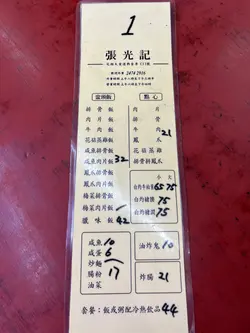 1
張光記
2474 2916
盅頭飯
點心
排骨飯
牛肉飯
花菇蒸雞飯
咸魚排骨飯 32
鳳爪排骨飯
鳳爪肉片飯
梅菜排骨飯
梅菜肉片飯
臘味飯 42
排骨
肉片
牛肉 21
花菇蒸雞
鳳爪
排骨排鳳爪
小 大
白灼牛柏葉 65 75
白灼豬潤 75
白灼豬腰 75
咸魚 10
咸蛋 6
炒麵
腸粉 17
油菜
油炸鬼 10
炸腸 21
套餐:飯或粥配冷熱飲品 44